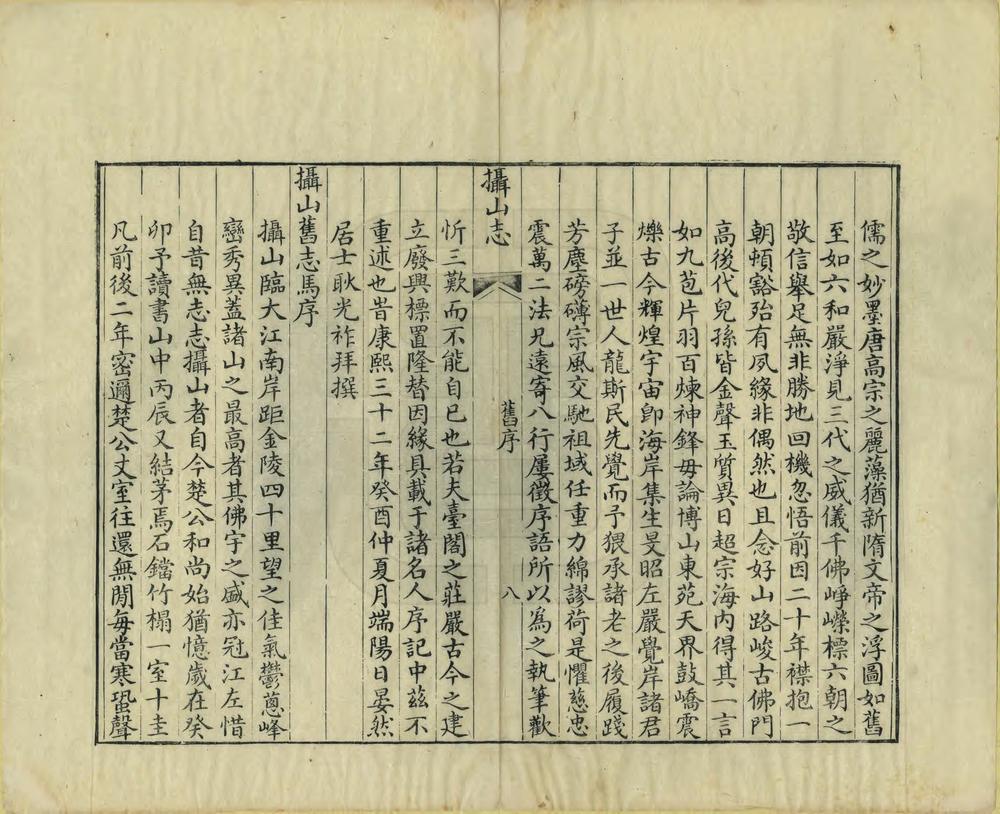 儒之妙墨唐高宗之麗藻猶新隋文帝之浮圖如舊
至如六和嚴淨見三代之威儀千佛崢嶸標六朝之
敬信舉足無非勝地回機忽悟前因二十年襟抱一
朝頓豁殆有夙緣非偶然也且念好山路峻古佛門
高後代兒孫皆金聲玉質異日超宗海內得其一言
如九苞片羽百煉神鋒毋論博山東苑天界鼓嶠震
爍古今輝煌宇宙卽海岸集生旻昭左嚴覺岸諸君
子並一世人龍斯民先覺而予猥承諸老之後履踐
芳塵磅礴宗風交馳祖域任重力綿謬荷是懼慈忠
震萬二法兄遠寄八行屢徵序語所以爲之執筆歡
攝山志
舊序
八
忻三歎而不能自已也若夫臺閣之莊嚴古今之建
立廢興標置隆替因緣具載于諸名人序記中茲不
重述也旹康熙三十二年癸酉仲夏月端陽日晏然
居士耿光祚拜撰
攝山舊志馬序
攝山臨大江南岸距金陵四十里望之佳氣鬱蔥峰
巒秀異蓋諸山之最高者其佛宇之盛亦冠江左惜
自昔無志志攝山者自今楚公和尚始猶憶歲在癸
卯予讀書山中丙辰又結茅焉石鐺竹榻一室十圭
凡前後二年密邇楚公丈室往還無閒每當寒蛩聲